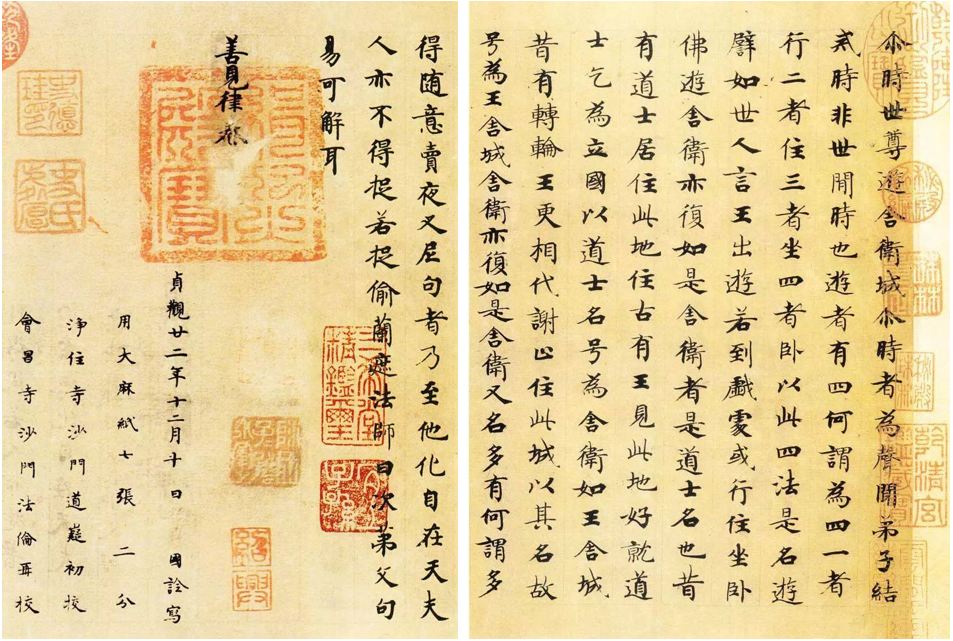 尒時世尊遊舍衛城尒時者為聲聞弟子結
戒時非世間時也遊者有四何謂為四一者
行二者住三者坐四者卧以此四法是名遊
譬如世人言王出遊若到戲處或行住坐卧
佛遊舍衛亦復如是舍衛者是道士名也昔
有道士居住此地住古有王見此地好就道
士乞為立國以道士名号為舍衛如王舍城
昔有轉輪王更相代謝止住此城以其名故
号為王舍城舍衛亦復如是舍衛又名多有何謂多
得随意賣夜叉尼句者乃至他化自在天夫
人亦不得捉若捉偷蘭遮法師曰次第父句
易可解耳
善見律卷
貞觀廿二年十二月十日 國詮寫
用大麻紙七張 二分
淨住寺沙門道嶷初校
會昌寺沙門法倫再校
三希堂精鑑璽
宜子孫
紹興